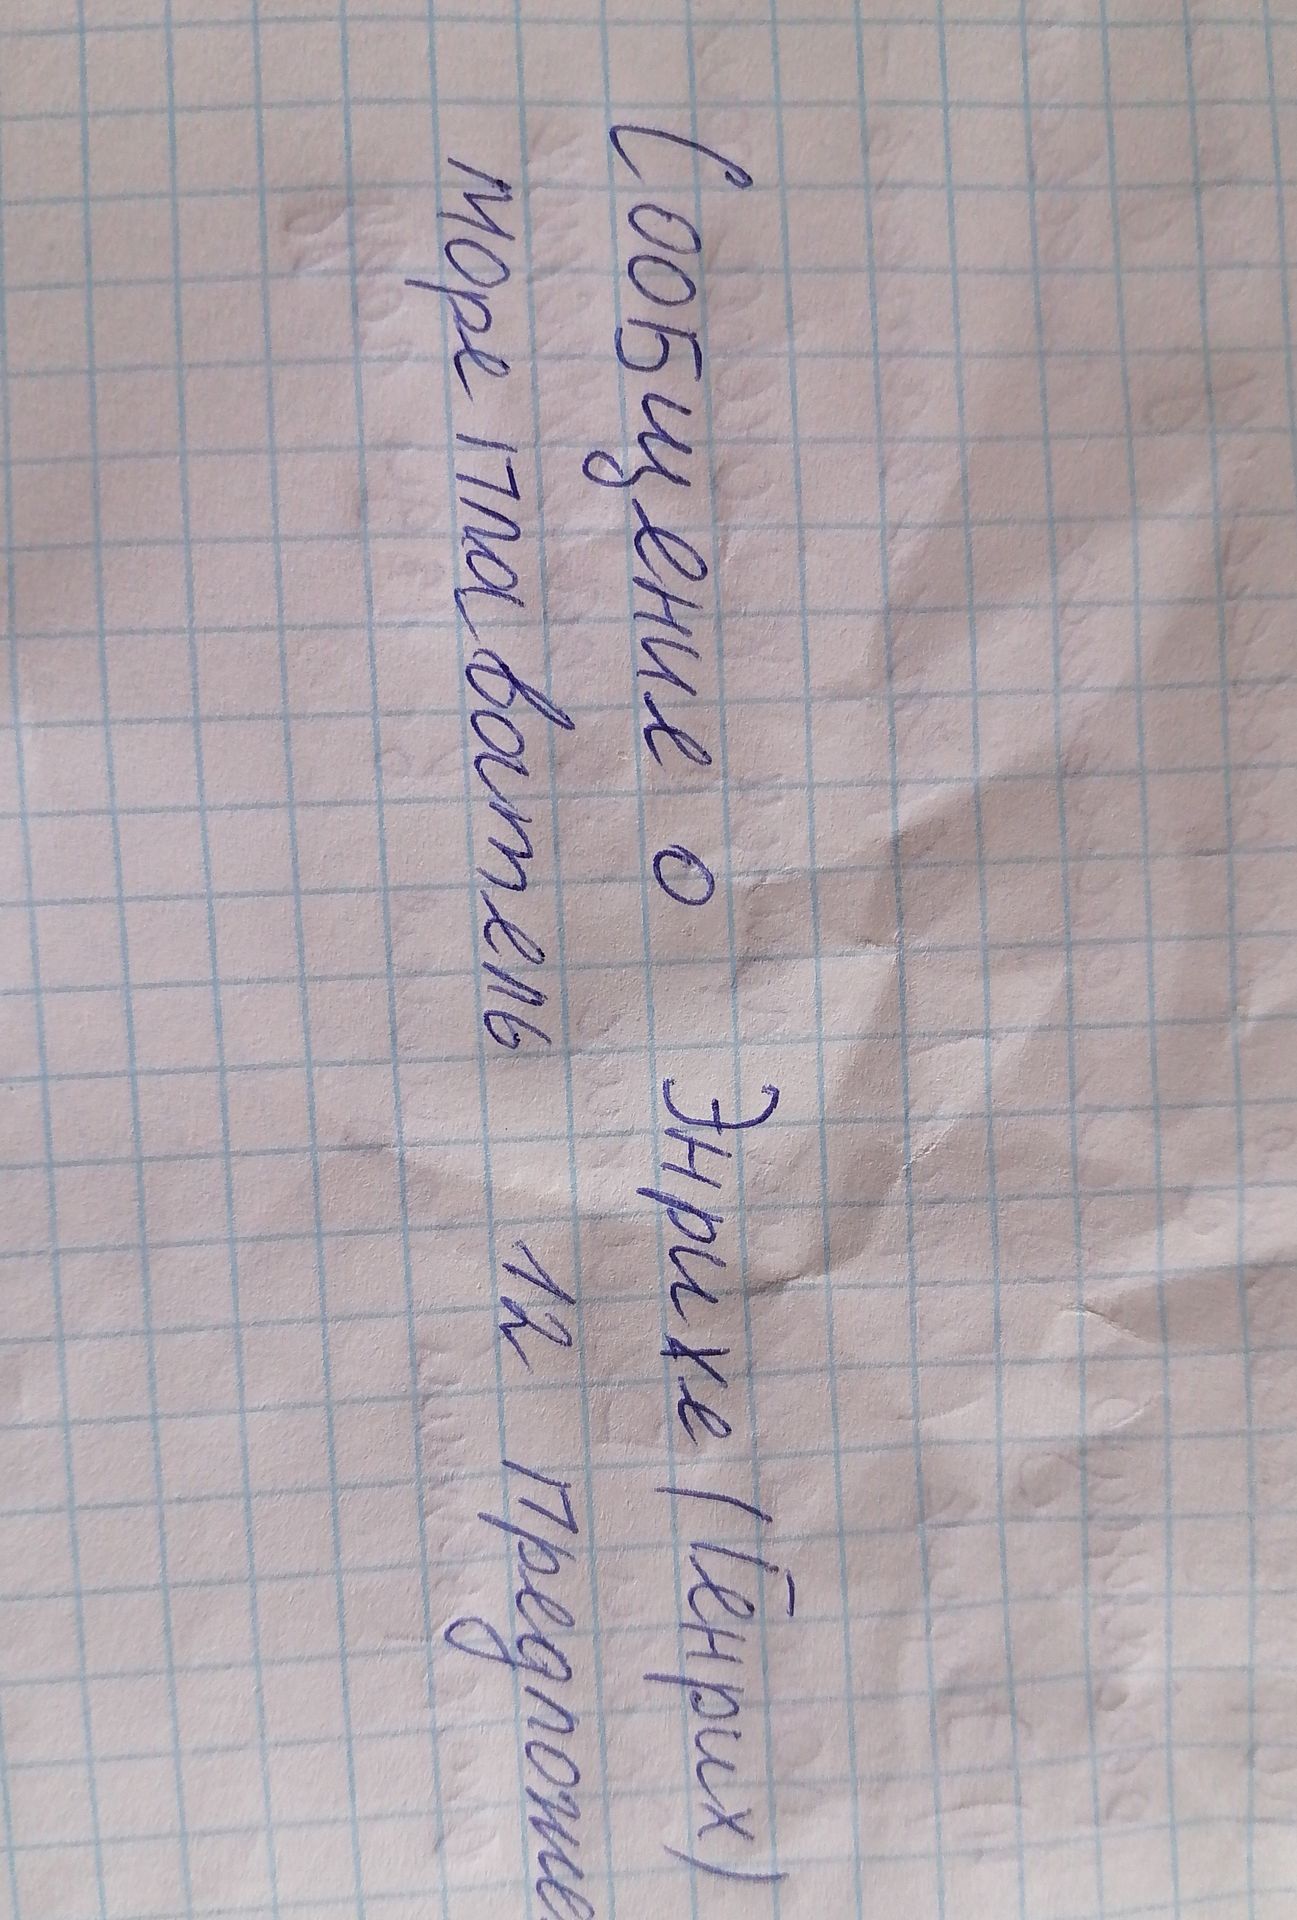 Сообщение о Энрихе (Генрих)
Море Плаватель 12 предложе